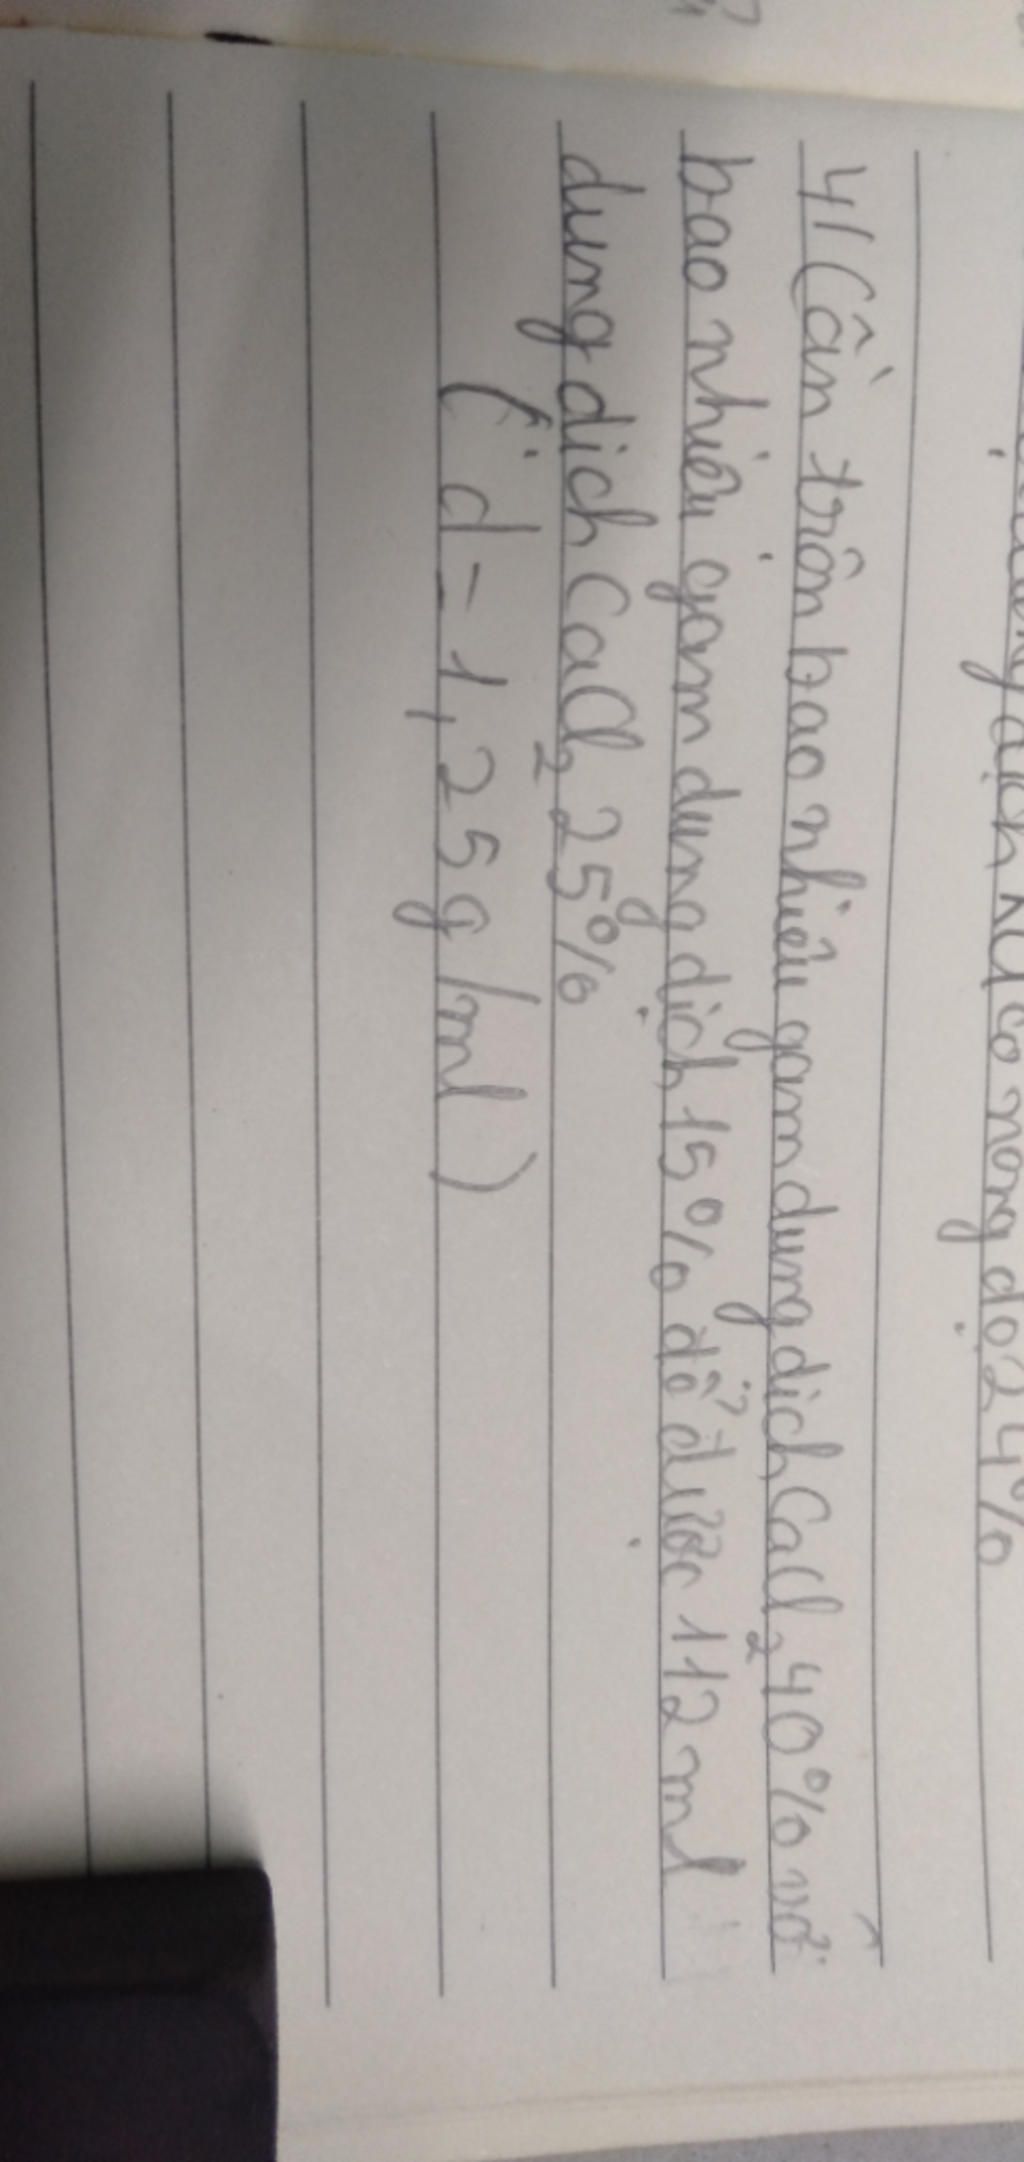 dung dịch KCl có nồng độ 24%
4/ Cần trộn bao nhiêu gam dung dịch CaCl2 40% với
bao nhiêu gam dung dịch 15% để được 112 ml
dung dịch CaCl2 25%
(d = 1,25g/ml)